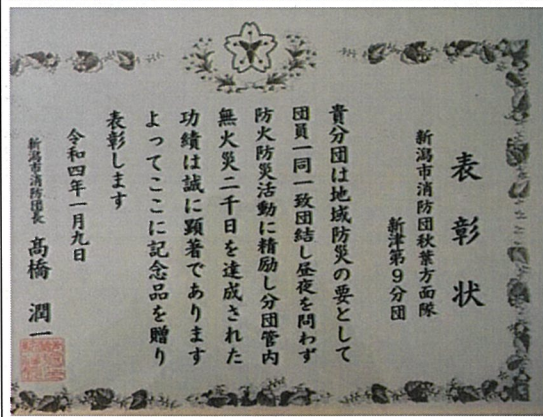 表彰状
新潟市消防団秋葉方面隊
新津第9分団
貴分団は地域防災の要として
団員一同一致団結し昼夜を問わず
防火防災活動に精励し分団管内
無火災二千日を達成された
功績は誠に顕著であります
よってここに記念品を贈り
表彰します
令和四年一月九日
新潟市消防団長 髙橋 潤一